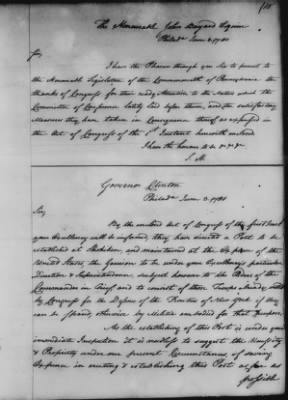 The Honorable John Bayard Esquire
Philada June 3. 1780
Sir,
I have the Pleasure through you to present to
the Honorable Legislature of the Commonwealth of Pennsylvania the
thanks of Congress for their ready Attention to the Matters which the
Committee of Congress lately laid before them, and the satisfactory
Measures they have taken in Consequence thereof as expressed in
the Act of Congress of the 1st Instant herewith enclosed
I have the honour to be &c &c &c
S. H.
Governor Clinton
Philada June 3. 1780
Sir,
By the enclosed Act of Congress of the first Inst
your Excellency will be informed, they have directed a Post to be
established at and maintained at the Expence of the
United States, the Garrison to be under your Excellency's particular
Direction & Superintendence, subject however to the Orders of the
Commander in Chief and to consist of those Troops
by Congress for the Defence of the Frontier of New York if they
can be spared, otherwise by Militia embodied for that purpose.
As the establishing of this Post is under your
immediate Inspection it is needless to suggest the Necessity
& Propriety under our present Circumstances of saving
Expence in erecting & establishing this Post as far as
possible